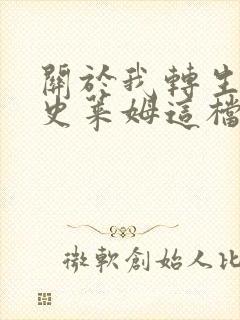 關於我轉生
史萊姆這檔
微軟創始人比